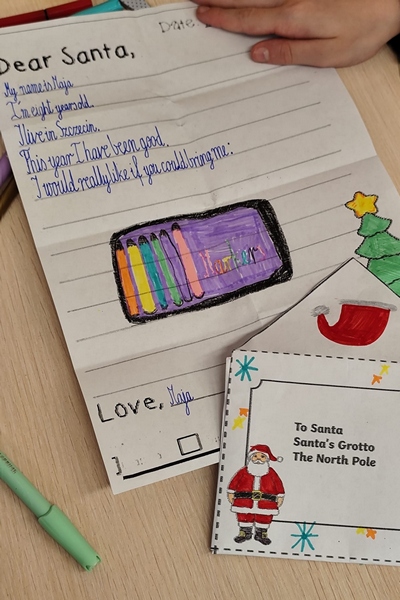 Date
Dear Santa,
My name is Maja
I'm eight years old.
I live in Szczecin.
This year I have been good.
I would really like if you could bring me:
Markers
Love, Maja
To Santa
Santa's Grotto
The North Pole